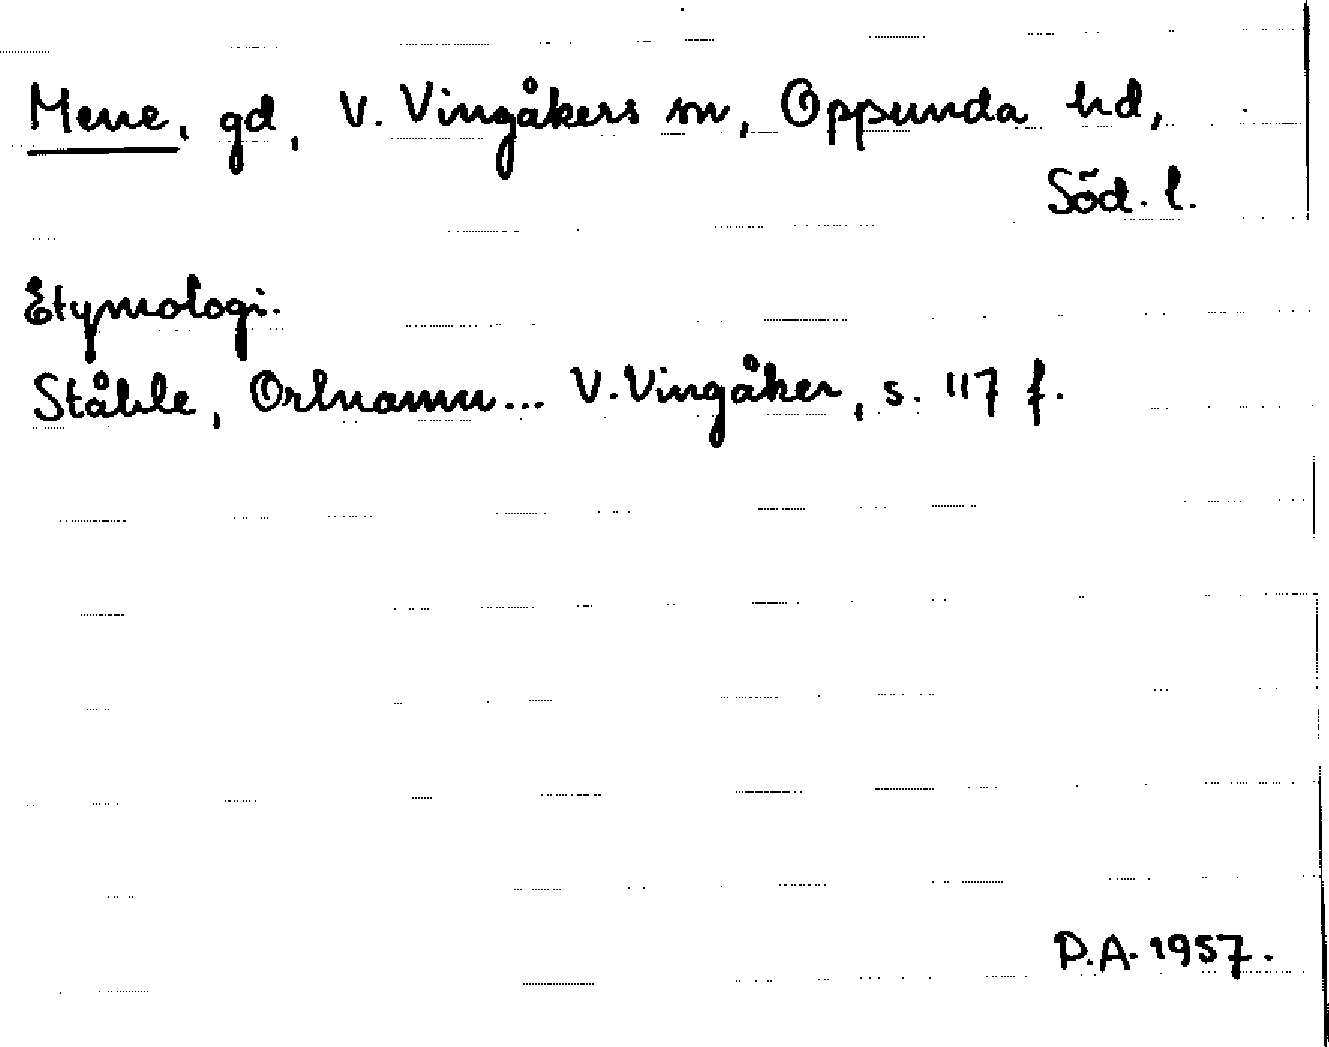 Mene, gd, V. Vingåkers sn, Oppunda hd,
Söd. l.
Etymologi.
Ståhle, Ortnamn... V. Vingåker, s. 117 f.
P.A. 1957.